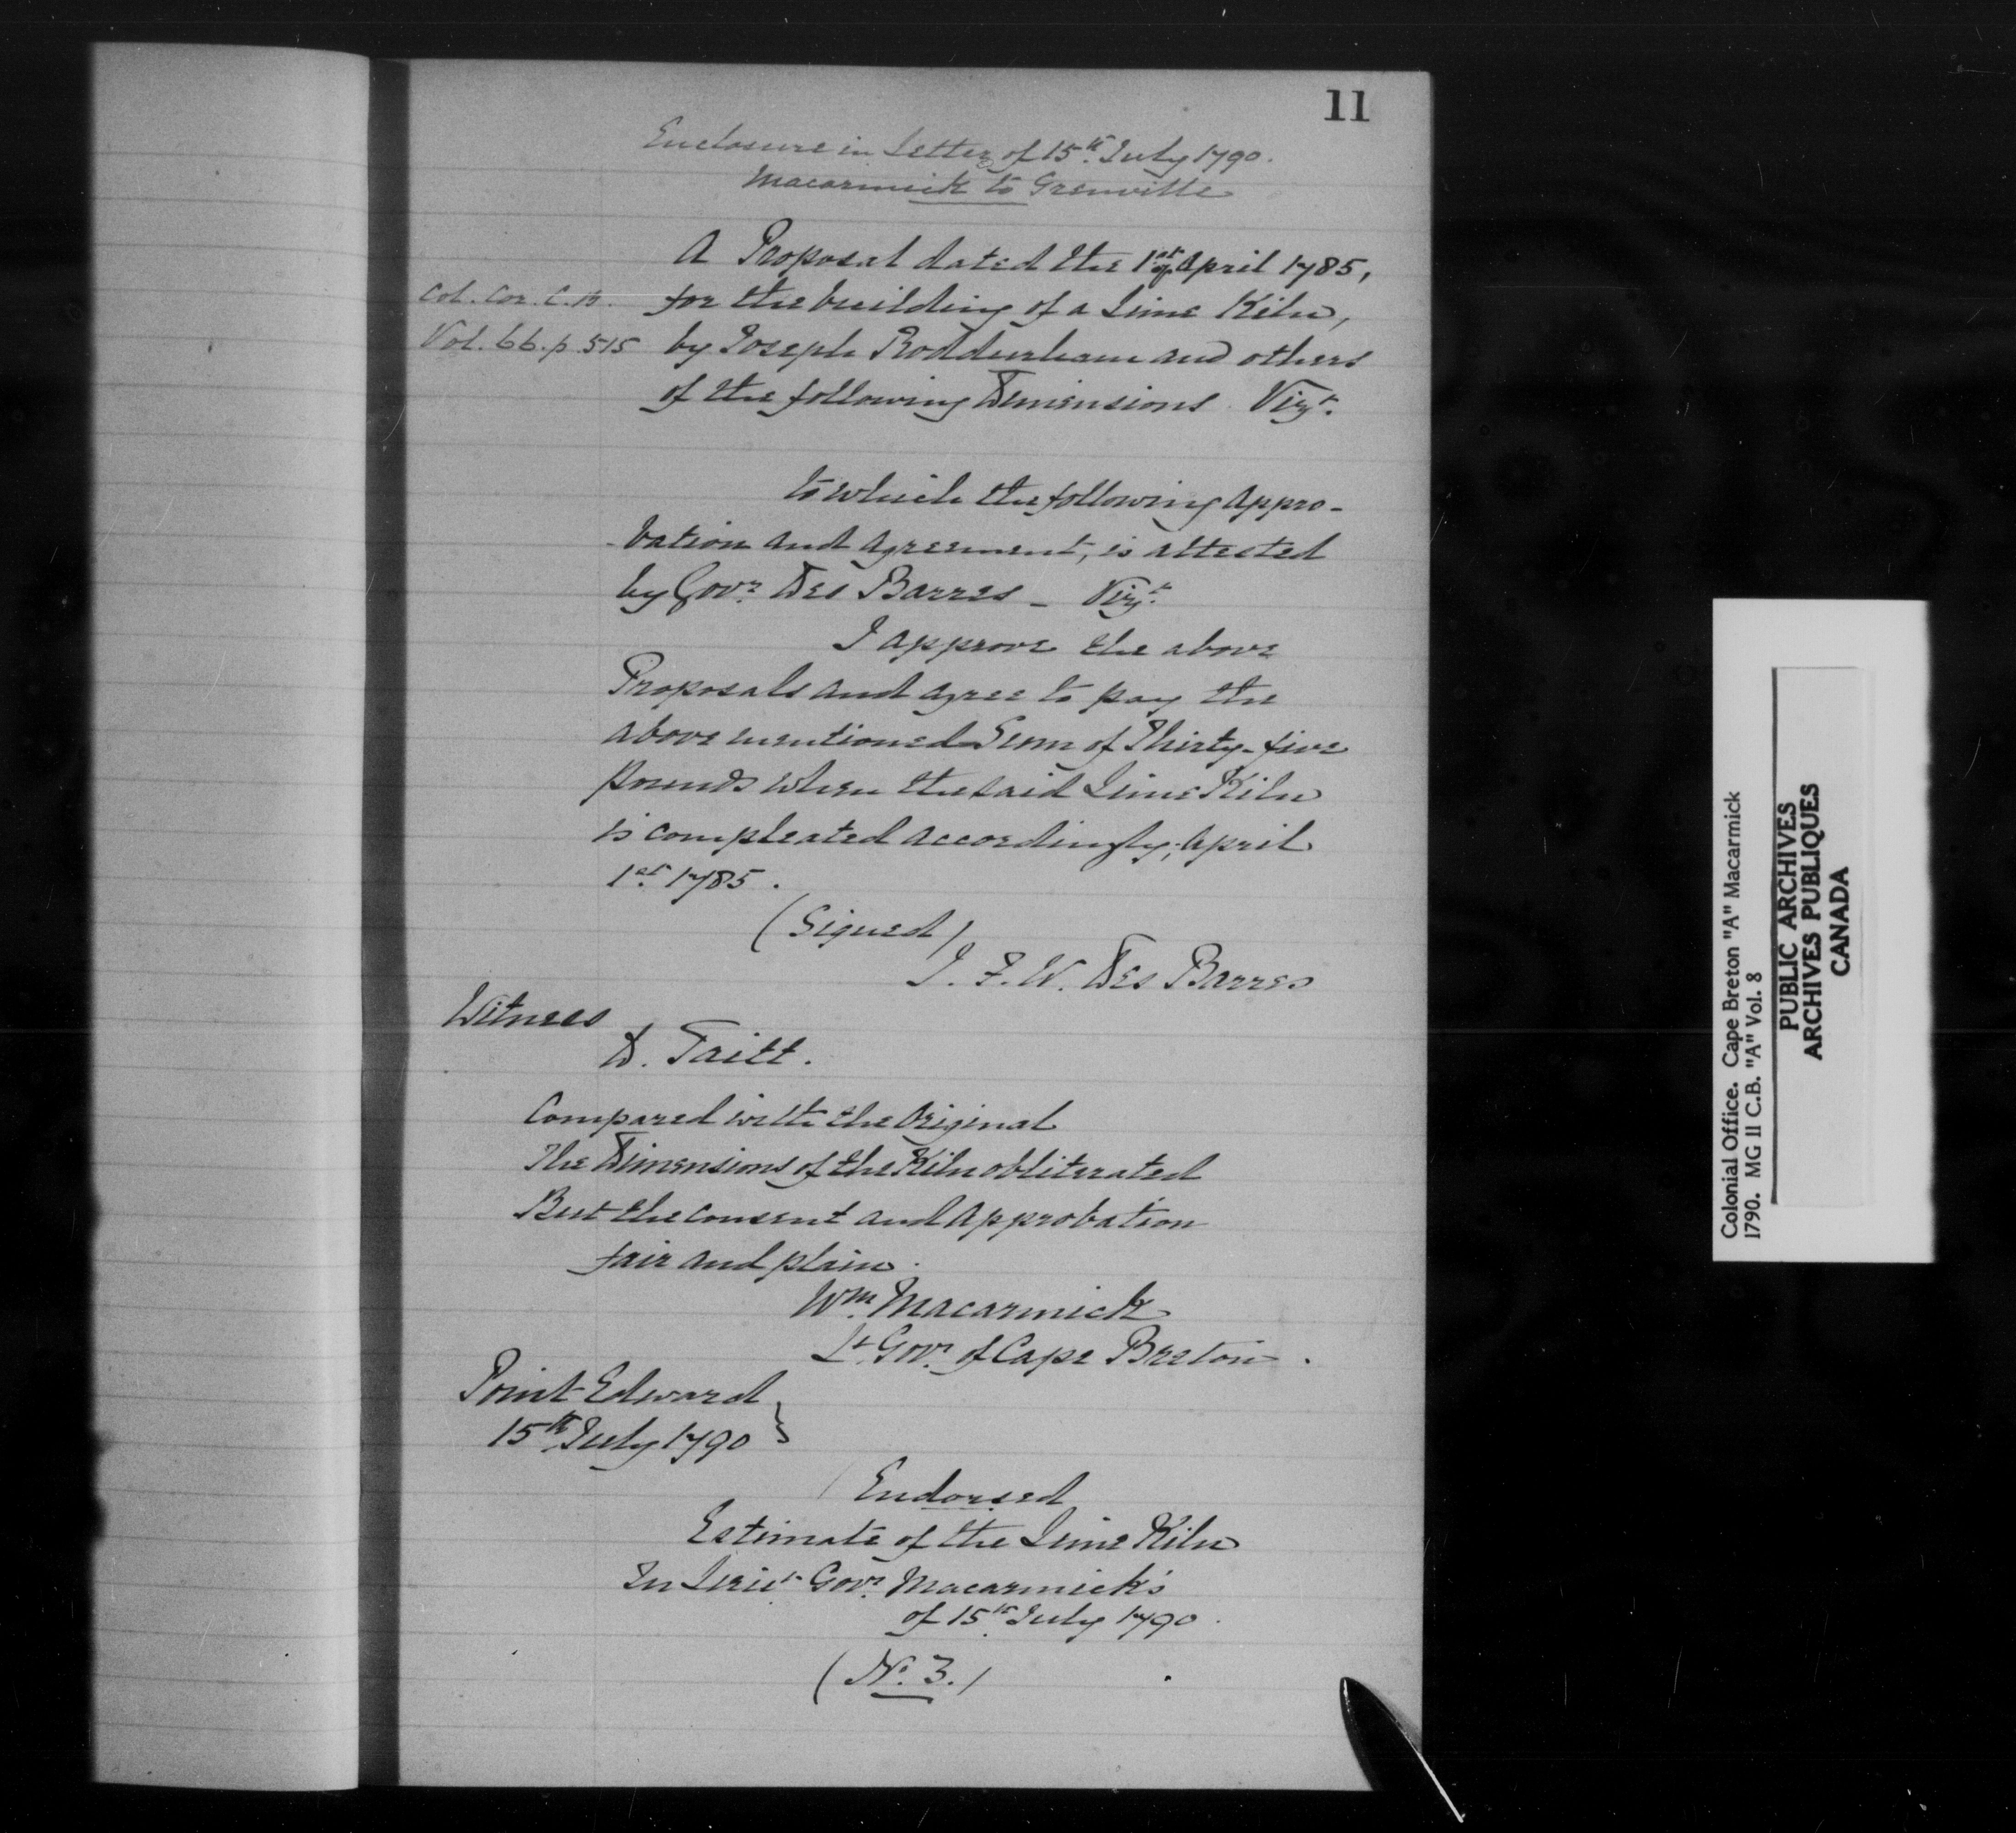 11
Enclosure in Letter of 15th July 1790.
Macarmick to Grenville
A Proposal dated the 1st of April 1785,
Col. Cor. C.B.
Vol. 66. p 515
for the building of a Lime Kiln,
by Joseph Roddenham and others
of the following Dimensions Vizt.
to which the following Appro-
-bation and Agreement, is attested
by Govr. Des Barres _ Vizt.
I approve the above
Proposals and agree to pay the
above mentioned Sum of Thirty-five
pounds when the said Lime Kiln
is compleated accordingly; April
1st 1785.
(Signed)
J. F. W. Des Barres
Witness
D. Taitt.
Compared with the Original
The Dimensions of the Kiln obliterated
But the consent and approbation
fair and plain.
Wm. Macarmick
Lt. Govr. of Cape Breton.
Point Edward
15th July 1790 }
Endorsed
Estimate of the Lime Kiln
In Lieut. Govr. Macarmick's
of 15th July 1790.
(No. 3.)
Colonial Office. Cape Breton "A" Macarmick
1790. MG 11 C.B. "A" Vol. 8
PUBLIC ARCHIVES
ARCHIVES PUBLIQUES
CANADA